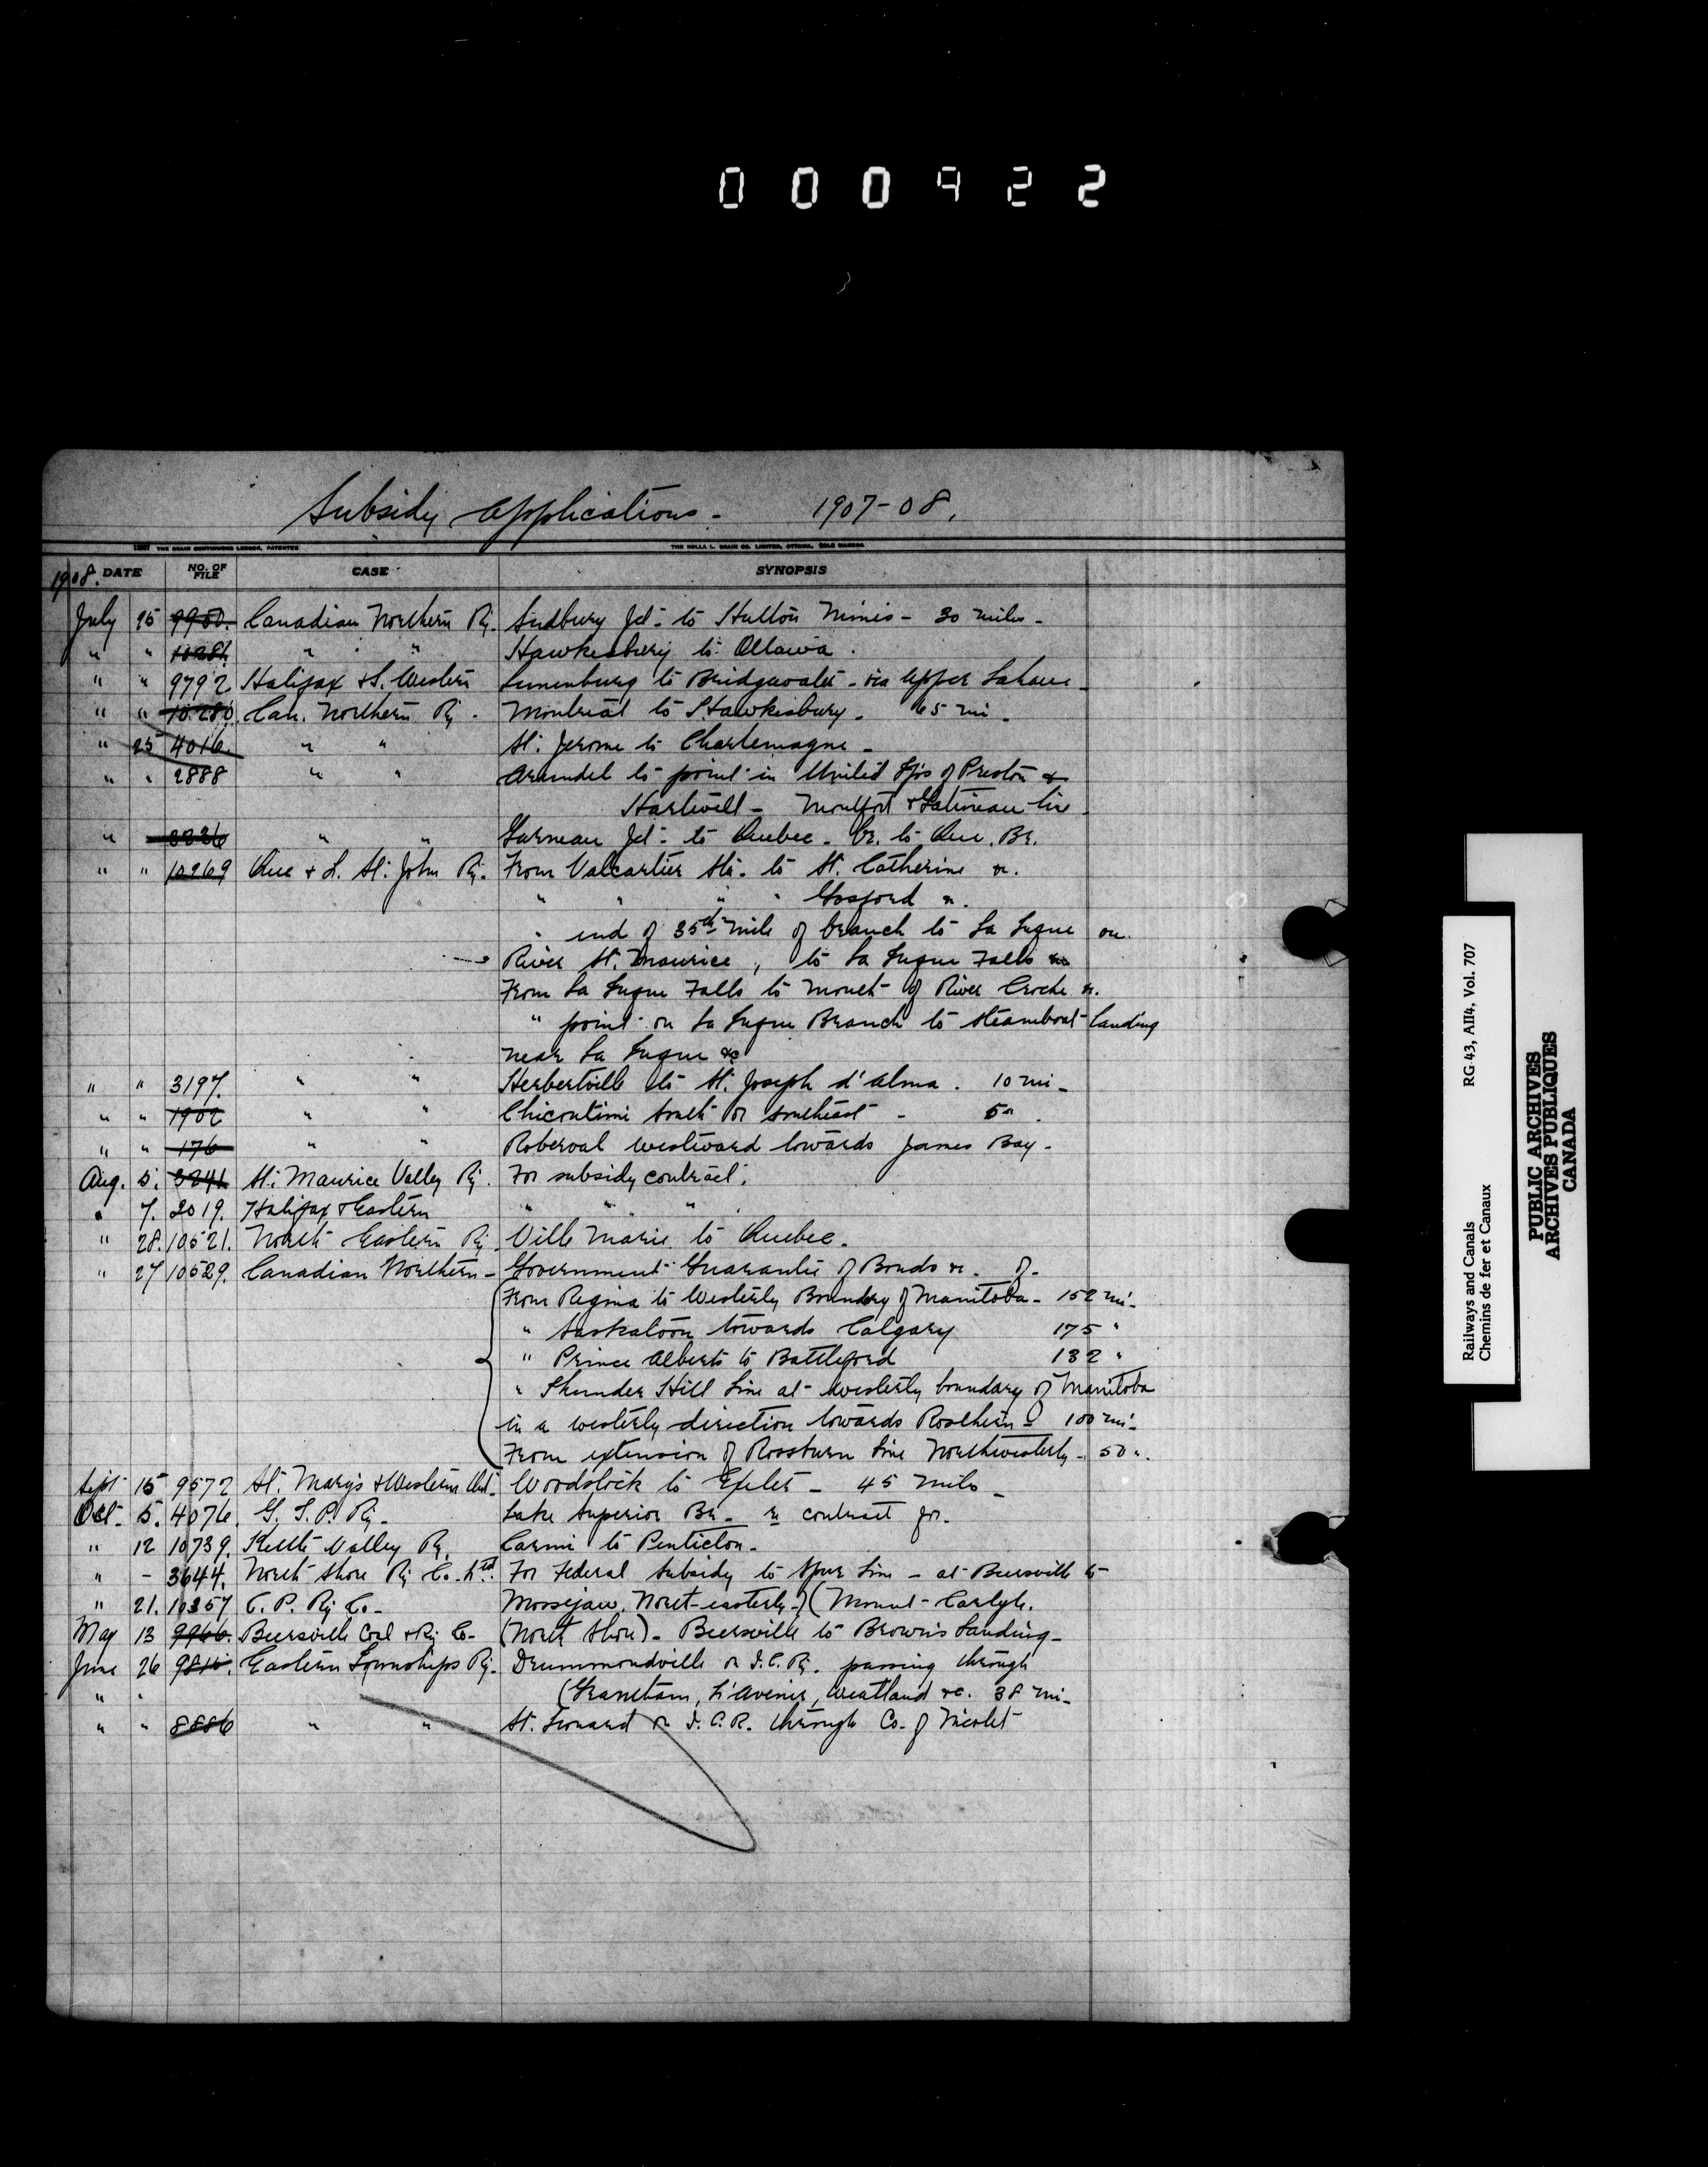 000922
Subsidy Applications - 1907-08.
THE CRAIN CONTINUOUS LEDGER, PATENTED THE ROLLA L. CRAIN CO. LIMITED, OTTAWA, SOLE MAKERS
1908. DATE NO. OF FILE CASE SYNOPSIS
July 25 9950. Canadian Northern Ry. Sudbury Jct. to Hutton Mines - 30 miles -
" " 10281. " " Hawkesbury to Ottawa.
" " 9792 Halifax & S. Western Lunenburg to Bridgewater - via Upper Lahave -
" " 10280. Can. Northern Ry. Montreal to Hawkesbury. 65 mi -
" 25 4016. " " St. Jerome to Charlemagne -
" " 2888 " " Arundel to point in United Tps of Preston &
Hartwell - Montfort & Gatineau line.
" 3336 " " Garneau Jct. to Quebec. Br. to Que. Br.
" " 10269 Que & L. St. John Ry. From Valcartier Sta. to St. Catherine &.
" " " " Gosford &.
" end of 35th mile of branch to La Tuque on
River St. Maurice, to La Tuque Falls &
From La Tuque Falls to mouth of River Croche &.
" point on La Tuque Branch to steamboat landing
near La Tuque &c
" " 3197. " " Herbertville to St. Joseph d'Alma. 10 mi -
" " 1902 " " Chicoutimi south or southeast - 5 "
" " 176 " " Roberval westward towards James Bay -
Aug. 5. 3241 St. Maurice Valley Ry. For subsidy contract.
" 7. 2019. Halifax & Eastern " " "
" 28. 10521. North Eastern Ry. Ville Marie to Quebec.
" 27 10529. Canadian Northern - Government Guarantee of Bonds &. of -
From Regina to Westerly Boundary of Manitoba - 152 mi -
" Saskatoon towards Calgary 175 "
" Prince Albert to Battleford 132 "
" Thunder Hill Line at westerly boundary of Manitoba
in a westerly direction towards Rosthern - 100 mi -
From extension of Rossburn Line Northwesterly - 50 ".
Sept 15 9572 St. Marys & Western Ont. Woodstock to Exeter - 45 miles -
Oct. 5. 4076. G. T. P. Ry. - Lake Superior Br. - re contract for.
" 12 10739. Kettle Valley Ry. Carmi to Penticton -
" - 3644. North Shore Ry. Co. Ltd. For Federal Subsidy to Spur Line - at Beersville to
" 21. 10357 C. P. Ry. Co. - Moosejaw, North-easterly - (Mount - Carlyle.
May 13 9966. Beersville Coal & Ry. Co - (North Shore) - Beersville to Brown's Landing -
June 26 9815. Eastern Townships Ry. Drummondville on I.C. Ry. passing through
" " (Grantham, L'Avenir, Weatland &c. 38 mi -
" " 8886 " " St. Leonard on I.C.R. through Co. of Nicolet
Railways and Canals RG 43, AII4, Vol. 707
Chemins de fer et Canaux
PUBLIC ARCHIVES
ARCHIVES PUBLIQUES
CANADA